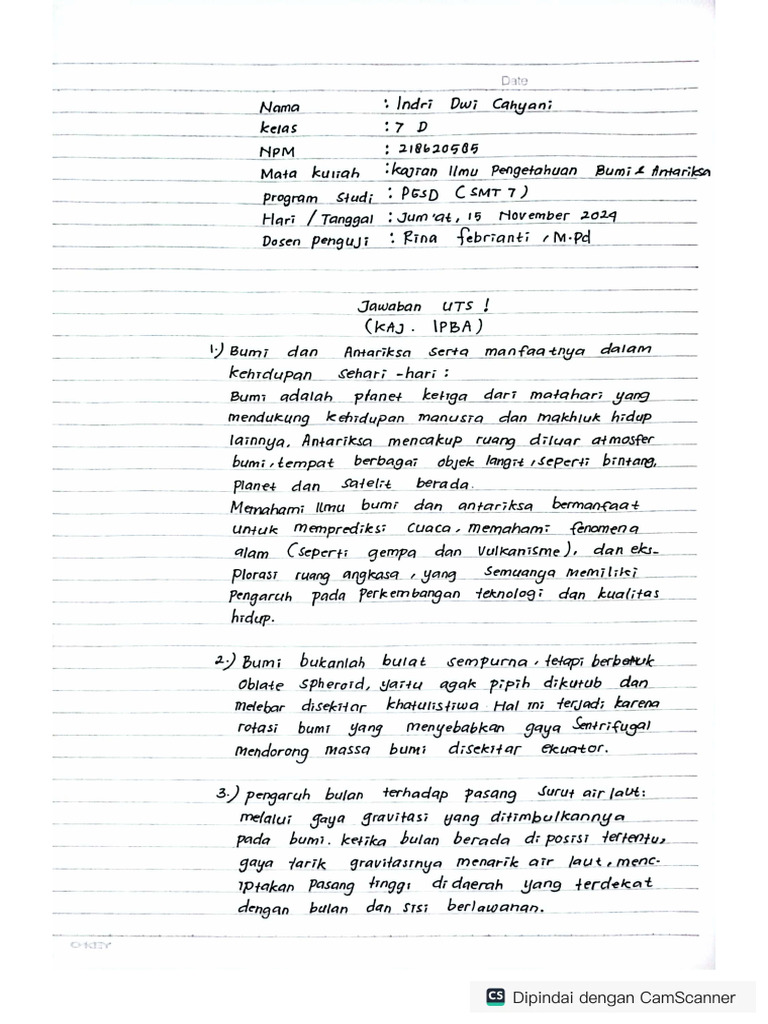 Date
Nama : Indri Dwi Cahyani
kelas : 7 D
NPM : 218620505
Mata kuliah : kajian Ilmu Pengetahuan Bumi & Antariksa
Program Studi : PGSD ( SMT 7 )
Hari / Tanggal : Jum'at, 15 November 2024
Dosen Penguji : Rina febrianti, M.Pd
Jawaban UTS !
(KAJ. IPBA)
1.) Bumi dan Antariksa serta manfaatnya dalam
kehidupan sehari-hari :
Bumi adalah planet ketiga dari matahari yang
mendukung kehidupan manusia dan makhluk hidup
lainnya. Antariksa mencakup ruang diluar atmosfer
bumi, tempat berbagai objek langit, seperti bintang,
Planet dan satelit berada.
Memahami Ilmu bumi dan antariksa bermanfaat
untuk memprediksi cuaca, memahami fenomena
alam (seperti gempa dan vulkanisme), dan eks-
Plorasi ruang angkasa, yang semuanya memiliki
Pengaruh pada Perkembangan teknologi dan kualitas
hidup.
2.) Bumi bukanlah bulat sempurna, tetapi berbentuk
Oblate spheroid, yaitu agak pipih dikutub dan
melebar disekitar khatulistiwa Hal ini terjadi karena
rotasi bumi yang menyebabkan gaya sentrifugal
mendorong massa bumi disekitar ekuator.
3.) pengaruh bulan terhadap pasang surut air laut:
melalui gaya gravitasi yang ditimbulkannya
pada bumi. ketika bulan berada di posisi tertentu,
gaya tarik gravitasinya menarik air laut, menc-
iptakan pasang tinggi di daerah yang terdekat
dengan bulan dan sisi berlawanan.
CS Dipindai dengan CamScanner